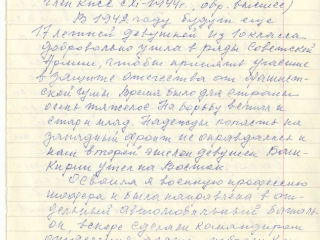 член КПСС с XI-1944г., обр. высшее)
В 1942 году будучи еще
17 летней девушкой из 10 класса
добровольно ушла в ряды Советской
Армии, чтобы принять участие
в защите отечества от фашист-
ской чумы. Время было для страны
очень тяжелое. На борьбу встали и
стар и млад. Надежды попасть на
западный фронт не оправдались и
наш второй эшелон девушек Баш-
кирии ушел на Восток.
Освоила я военную профессию
шофера и была направлена в от-
дельный автомобильный баталь-
он, вскоре сделали командиром